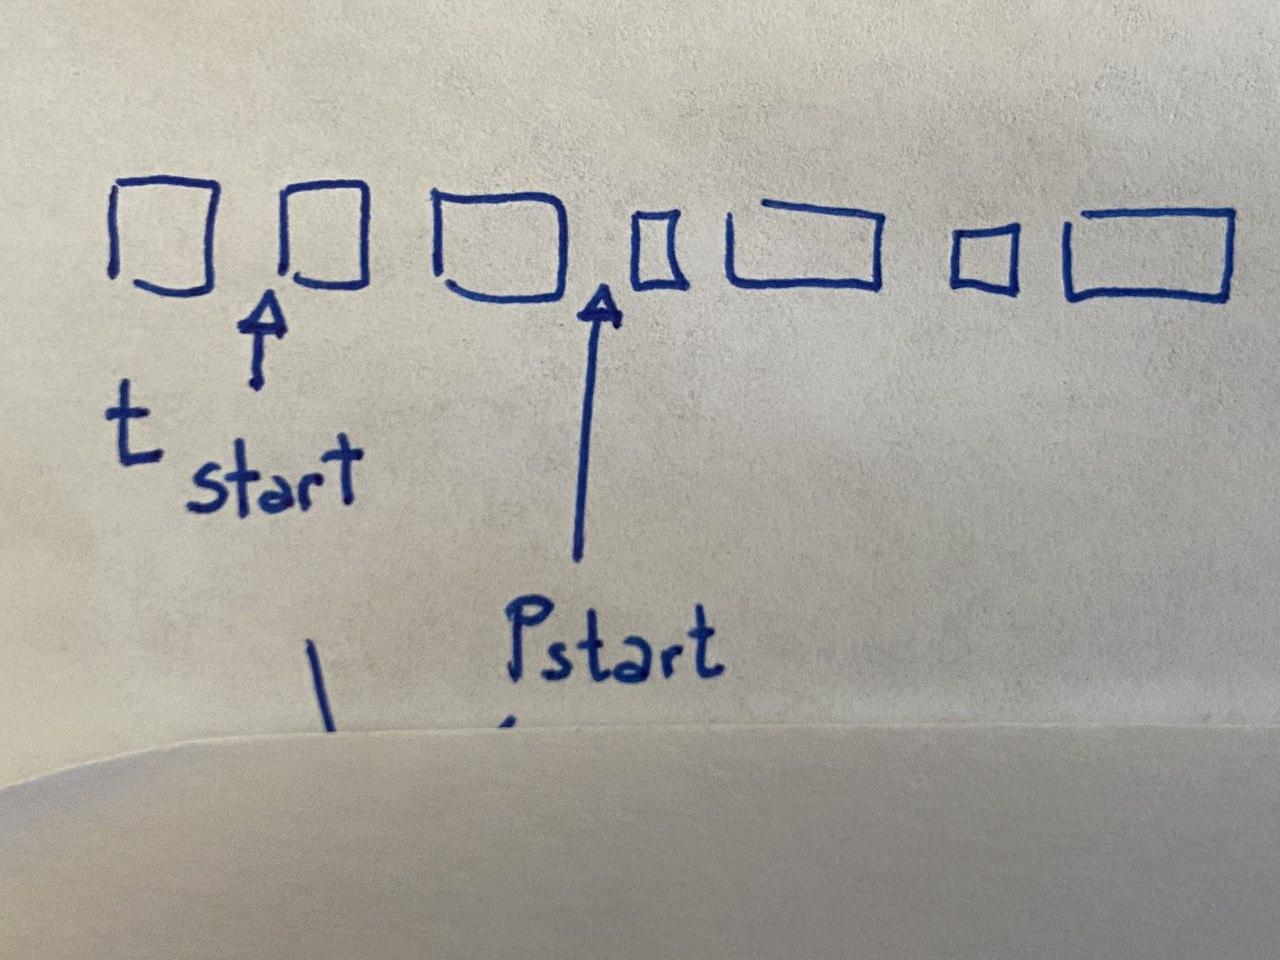 t start
Pstart